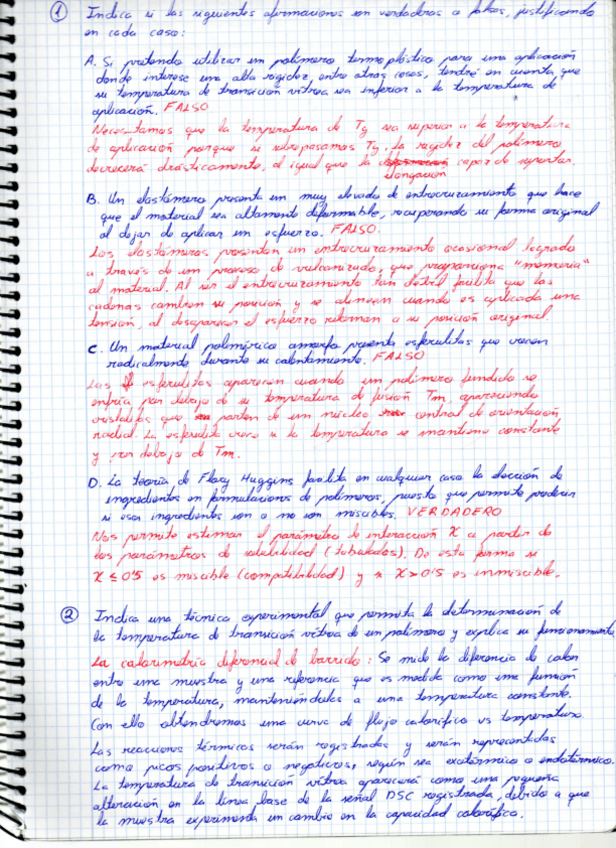 ① Indica si las siguientes afirmaciones son verdaderas o falsas, justificando
en cada caso:
A. Si pretendo utilizar un polímero termoplástico para una aplicación
donde interese una alta rigidez, entre otras cosas, tendré en cuenta que
su temperatura de transición vítrea sea inferior a la temperatura de
aplicación. FALSO
Necesitamos que la temperatura de Tg sea superior a la temperatura
de aplicación porque si sobrepasamos Tg, la rigidez del polímero
decrecerá drásticamente, al igual que la capaz de soportar.
elongación
B. Un elastómero presenta un muy elevado de entrecruzamiento que hace
que el material sea altamente deformable, recuperando su forma original
al dejar de aplicar un esfuerzo. FALSO.
Los elastómeros presentan un entrecruzamiento ocasional logrado
a través de un proceso de vulcanizado, que proporciona "memoria"
al material. Al ser el entrecruzamiento tan débil facilita que las
cadenas cambien su posición y se alineen cuando es aplicada una
tensión, al desaparecer el esfuerzo retornan a su posición original
C. Un material polimérico amorfo presenta esferulitas que crecen
radicalmente durante su calentamiento. FALSO
Las esferulitas aparecen cuando un polímero fundido se
enfría por debajo de su temperatura de fusión Tm, apareciendo
cristalitos que parten de un núcleo central de orientación
radial. La esferulita crece si la temperatura se mantiene constante
y por debajo de Tm.
D. La teoría de Flory Huggins facilita en cualquier caso la elección de
ingredientes en formulaciones de polímeros, puesto que permite predecir
si esos ingredientes son o no son miscibles. VERDADERO
Nos permite estimar el parámetro de interacción X a partir de
los parámetros de solubilidad (tabulados). De esta forma si
X ≤ 0'5 es miscible (compatibilidad) y si X > 0'5 es inmiscible.
② Indica una técnica experimental que permita la determinación de
la temperatura de transición vítrea de un polímero y explica su funcionamiento
La calorimetría diferencial de barrido: Se mide la diferencia de calor
entre una muestra y una referencia que es medida como una función
de la temperatura, manteniéndolas a una temperatura constante.
Con ello obtendremos una curva de flujo calorífico vs temperatura.
Las reacciones térmicas serán registradas y serán representadas
como picos positivos o negativos, según sea exotérmica o endotérmica.
La temperatura de transición vítrea aparecerá como una pequeña
alteración en la línea base de la señal DSC registrada, debido a que
la muestra experimenta un cambio en la capacidad calorífica.